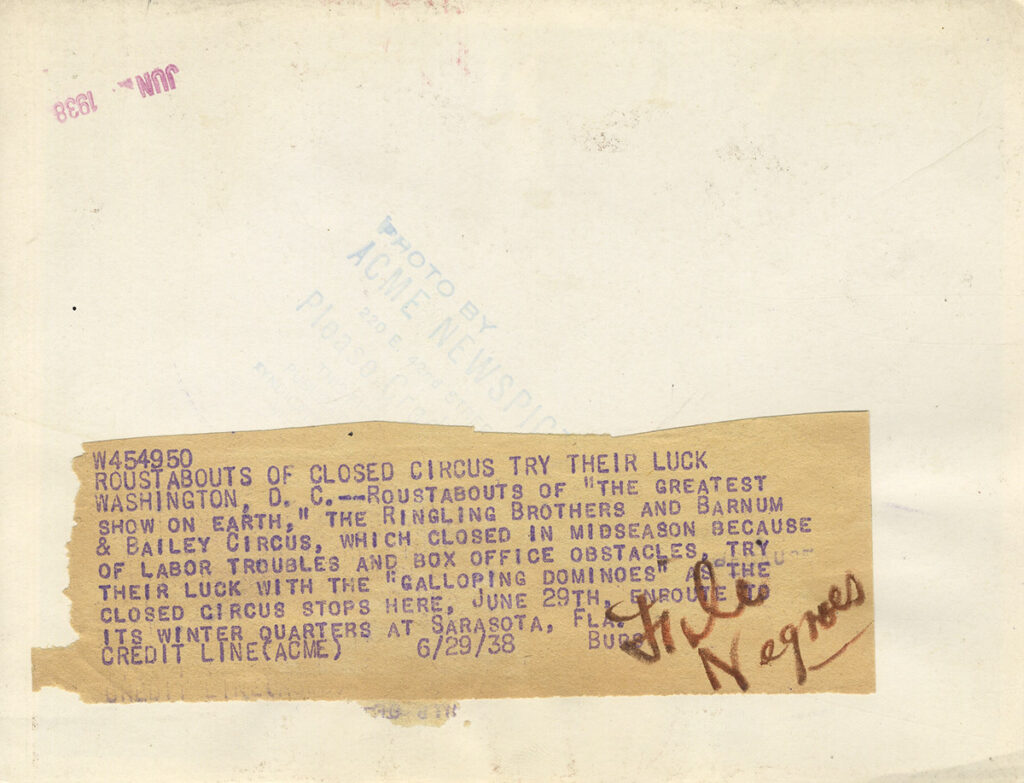 JUN 1938
PHOTO BY
ACME NEWSPIC
220 E. 42nd
Please
W454950
ROUSTABOUTS OF CLOSED CIRCUS TRY THEIR LUCK
WASHINGTON, D. C.--ROUSTABOUTS OF "THE GREATEST
SHOW ON EARTH," THE RINGLING BROTHERS AND BARNUM
& BAILEY CIRCUS, WHICH CLOSED IN MIDSEASON BECAUSE
OF LABOR TROUBLES AND BOX OFFICE OBSTACLES, TRY
THEIR LUCK WITH THE "GALLOPING DOMINOES" AS THE
CLOSED CIRCUS STOPS HERE, JUNE 29TH, ENROUTE TO
ITS WINTER QUARTERS AT SARASOTA, FLA.
CREDIT LINE(ACME) 6/29/38
File
Negroes